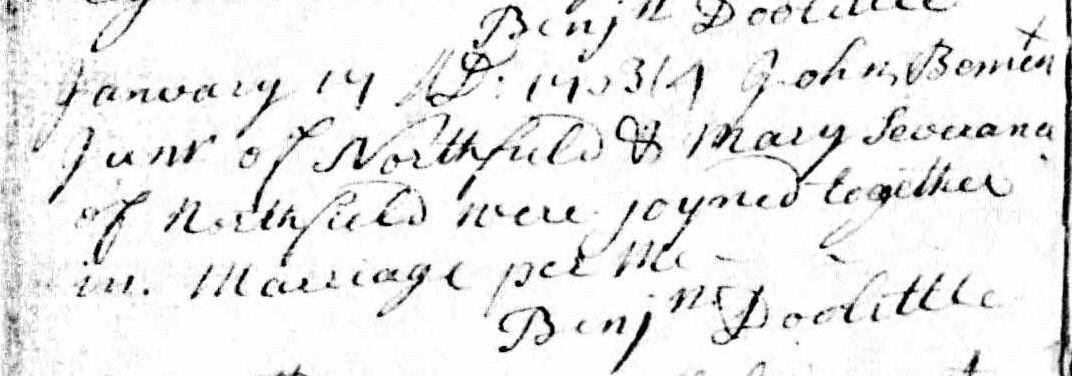 Benjn Doolittle
January 17 AD: 1753/4 John Bement
Junr of Northfield & Mary Severance
of Northfield were joyned together
in Marriage per Me
Benjn Doolittle